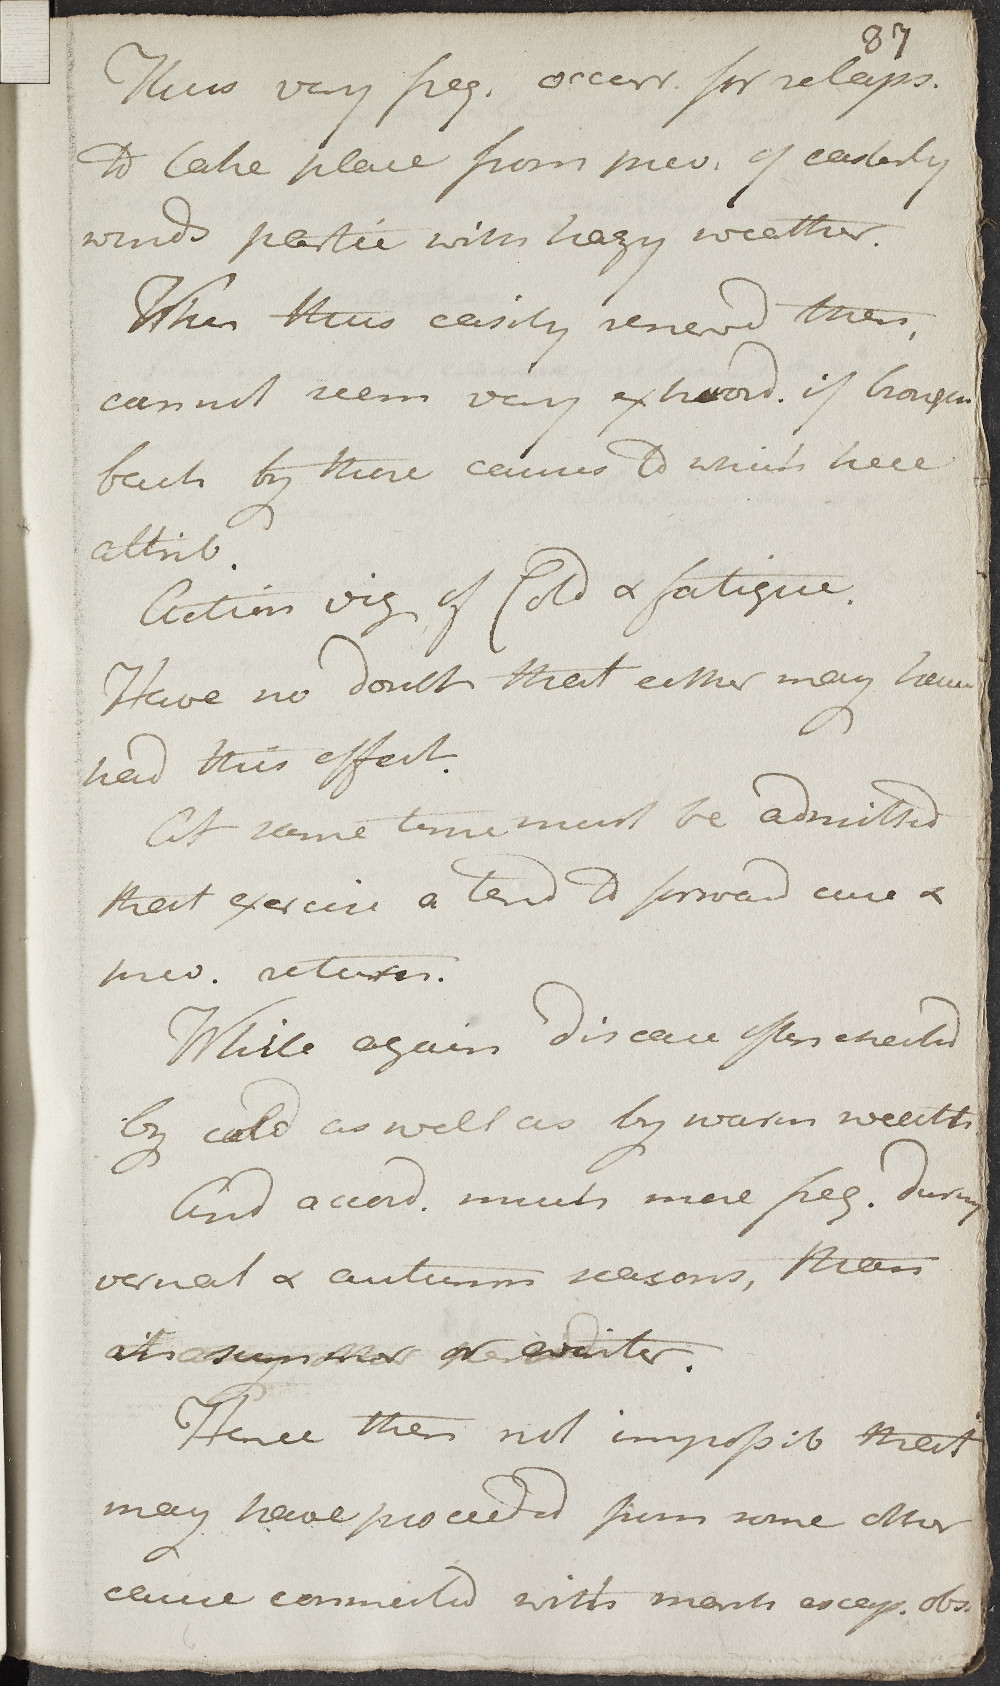 87
Thus very freq. occurr. for relaps.
to take place from prev. of easterly
winds partic with hazy weather.
When thus easily renewd then,
cannot seem very extraord. if brought
back by those causes to which here
attrib.
Action viz. of Cold & fatigue.
Have no doubt that either may have
had this effect.
At same time must be admitted
that exercise a tend to forward cure &
prev. return.
While again disease often excited
by cold as well as by warm weath
And accord. much more freq. during
vernal & autumn seasons, than
in summer or winter.
Hence then not impossib that
may have proceeded from some other
cause connected with escap. obs.